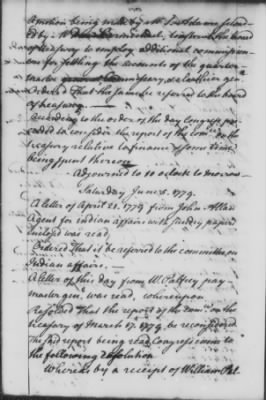 A motion being made by Mr S. Adams second
ed by Mr to empower the board
of treasury to employ additional commission
ers for settling the accounts of the quarter
master commissary & clothier gen
Ordered That the same be referred to the board
of treasury.
According to the order of the day Congress pro
ceeded to consider the report of the comee on the
treasury relative to finance & some time
being spent thereon
Adjourned to 10 oClock to morrow
Saturday June 5. 1779.
A letter of April 21. 1779 from John Allan
Agent for indian affairs with sundry papers
inclosed was read,
Ordered That it be referred to the committee on
Indian affairs.
A letter of this day from W. Palfrey pay
master gen. was read, whereupon
Resolved That the report of the comee on the
treasury of March 17. 1779. be reconsidered
The said report being read, Congress came to
the following resolution
Whereas by a receipt of William Pal